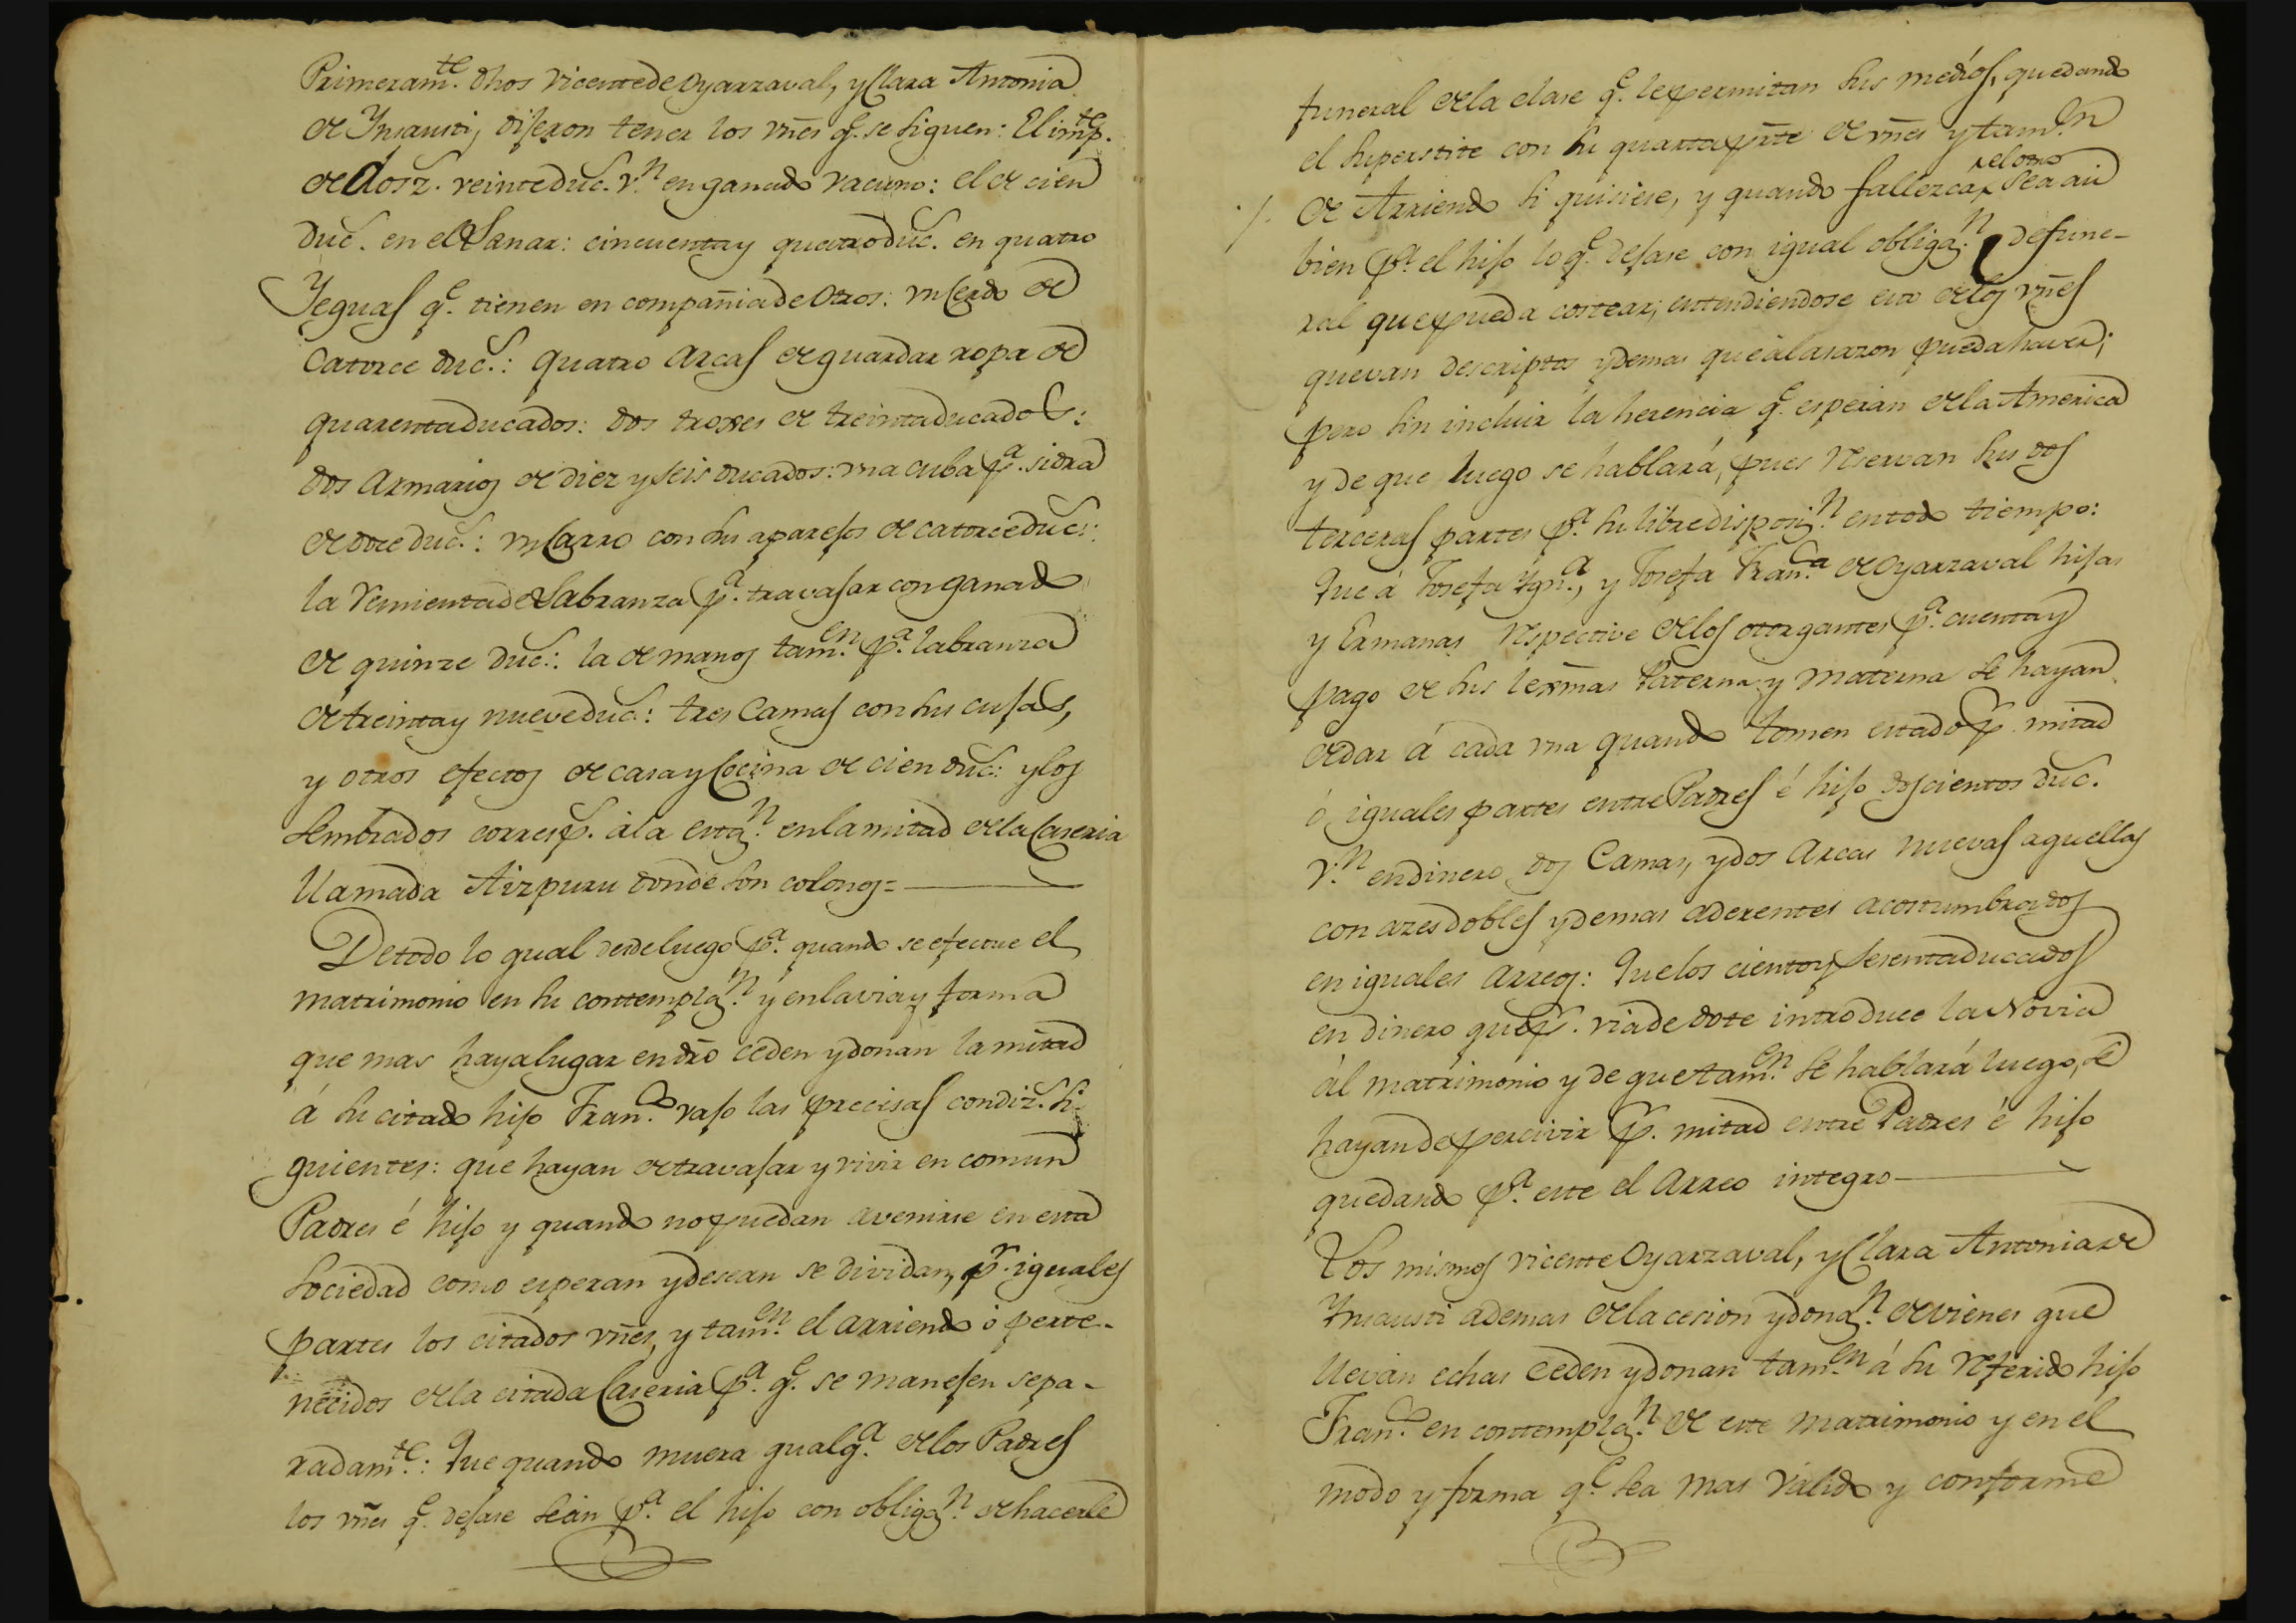 Primeram.te dhos Vicente de Oyarzaval, y Clara Antonia
de Ynsausti, dijeron tener los vñes q.e se siguen: El imp.te
de dosz. veinte duc.s v.n en ganado vacuno: el de cien
duc.s en el Lanar: cincuenta y quatro duc.s en quatro
Yeguas q.e tienen en compañia de otros: vn Cerdo de
Catorce duc.s: quatro arcas de guardar ropa de
quarenta ducados: dos troxes de treinta ducados:
dos Armarios de diez y seis ducados: vna cuba p.a sidra
de doce duc.s: vn Carro con sus aparejos de catorce duc.s:
la Remienta de Labranza p.a travajar con ganado
de quinze duc.s: la de manos tam.en p.a labranza
de treinta y nueve duc.s: tres Camas con sus cujas,
y otros efectos de casa y Cocina de cien duc.s: y los
Sembrados corresp. à la estaz.n en la mitad de la Caseria
llamada Aizpuru donde son colonos=
De todo lo qual desde luego p.a quando se efectue el
matrimonio en su contemplaz.n y en la via y forma
que mas haya lugar en dr̃o ceden y donan la mitad
á su citado hijo Fran.co vajo las precisas condiz.s si-
guientes: que hayan de travajar y vivir en comun
Padres é hijo y quando no puedan avenirse en esta
Sociedad como esperan y desean se dividan, p.r iguales
partes los citados vñes, y tam.en el arriendo ó perte-
necidos de la citada Caseria p.a q.e se manejen sepa-
radam.te: Que quando muera qualq.a de los Padres
los vñes q.e dejare seàn p.a el hijo con obligaz.n de hacerle
funeral de la clase q.e le permitan sus medios, quedando
el superstite con su quarta pr̃te de vñes y tam.en
el otro
/. de Arriendo si quisiese, y quando fallezca, sea aũ
bien p.a el hijo lo q.e dejare con igual obligaz.n de fune-
ral que pueda costear; entendiendose esto de los vñes
que van descriptos y demas que à la sazon pueda haver;
pero sin incluir la herencia q.e esperàn de la America
y de que luego se hablará, pues reservan sus dos
terceras partes p.a su libre disposiz.n en todo tiempo:
Que à Josefa Ygn.a, y Josefa Fran.ca de Oyarzaval hijas
y Ermanas respective de los otorgantes p.a cuenta y
pago de sus lexm̃as Paterna y Materna se hayan
de dar á cada vna quando tomen estado p.r mitad
ó iguales partes entre Padres é hijo doscientos duc.s
v.n en dinero dos Camas, y dos Arcas nuevas aquellas
con azes dobles y demas aderentes acostumbrados
en iguales arreos: Que los ciento y sesenta ducados
en dinero que p.r via de dote introduce la Novia
àl matrimonio y de que tam.en se hablará luego, se
hayan de percivir p.r mitad entre Padres é hijo
quedando p.a este el Arreo integro
Los mismos Vicente Oyarzaval, y Clara Antonia de
Ynsausti ademas de la cecion y donaz.n de vienes que
llevàn echas ceden y donan tam.en á su referido hijo
Fran.co en contemplaz.n de este matrimonio y en el
modo y forma q.e sea mas valido y conforme